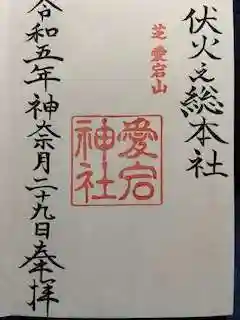 伏火之総本社
芝愛宕山
愛宕
神社
令和五年神奈月二十九日奉拝